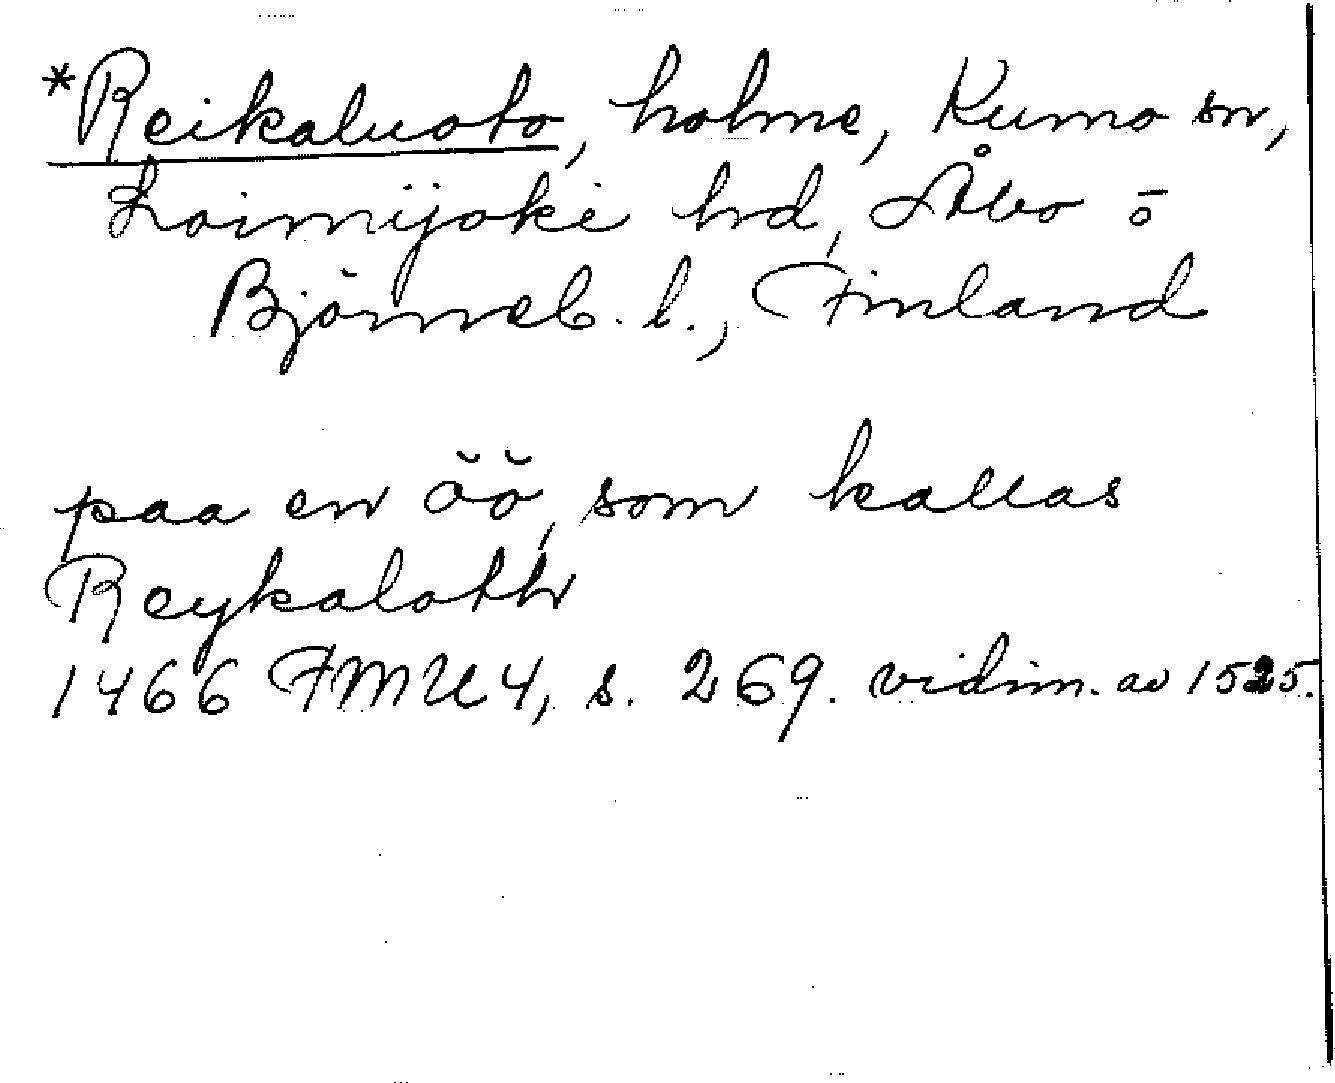 *Reikaluoto, holme, Kumo sn,
Loimijoki hd, Åbo o
Björneb. l., Finland
paa en öö, som kallas
Reykaloth
1466 FMU 4, s. 269. vidim. av 1525.